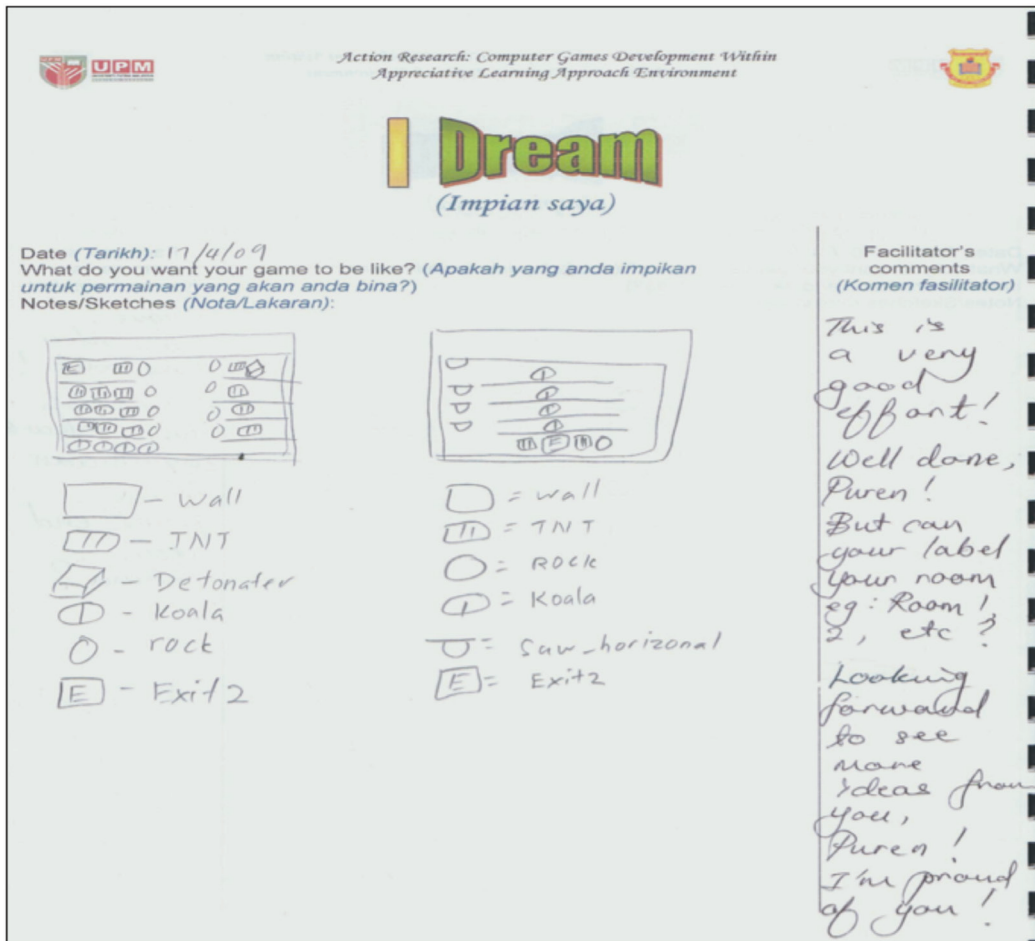 UPM
Action Research: Computer Games Development Within
Appreciative Learning Approach Environment
I Dream
(Impian saya)
Date (Tarikh): 17/4/09
What do you want your game to be like? (Apakah yang anda impikan
untuk permainan yang akan anda bina?)
Notes/Sketches (Nota/Lakaran):
E
E
- Wall
- TNT
- Detonater
- Koala
- rock
E - Exit 2
= wall
= TNT
= ROCK
= Koala
= Saw_horizonal
E = Exit2
Facilitator's
comments
(Komen fasilitator)
This is
a very
good
effort!
Well done,
Puren!
But can
your label
your room
eg: Room 1,
2, etc?
Looking
forward
to see
more
ideas from
you,
Puren!
I'm proud
of you!